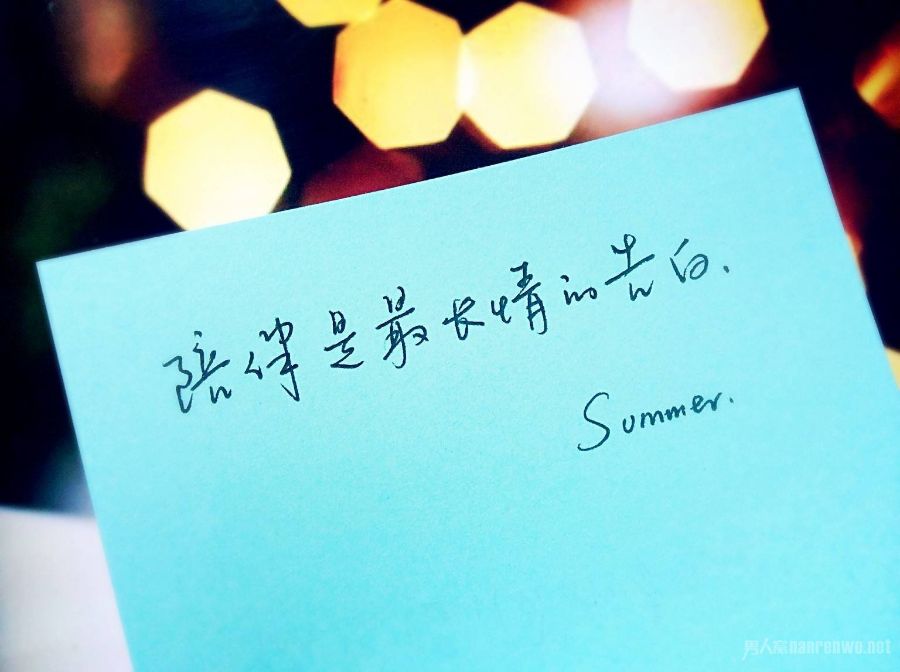 陪伴是最长情的告白.
Summer.
男人窝nanrenwo.net